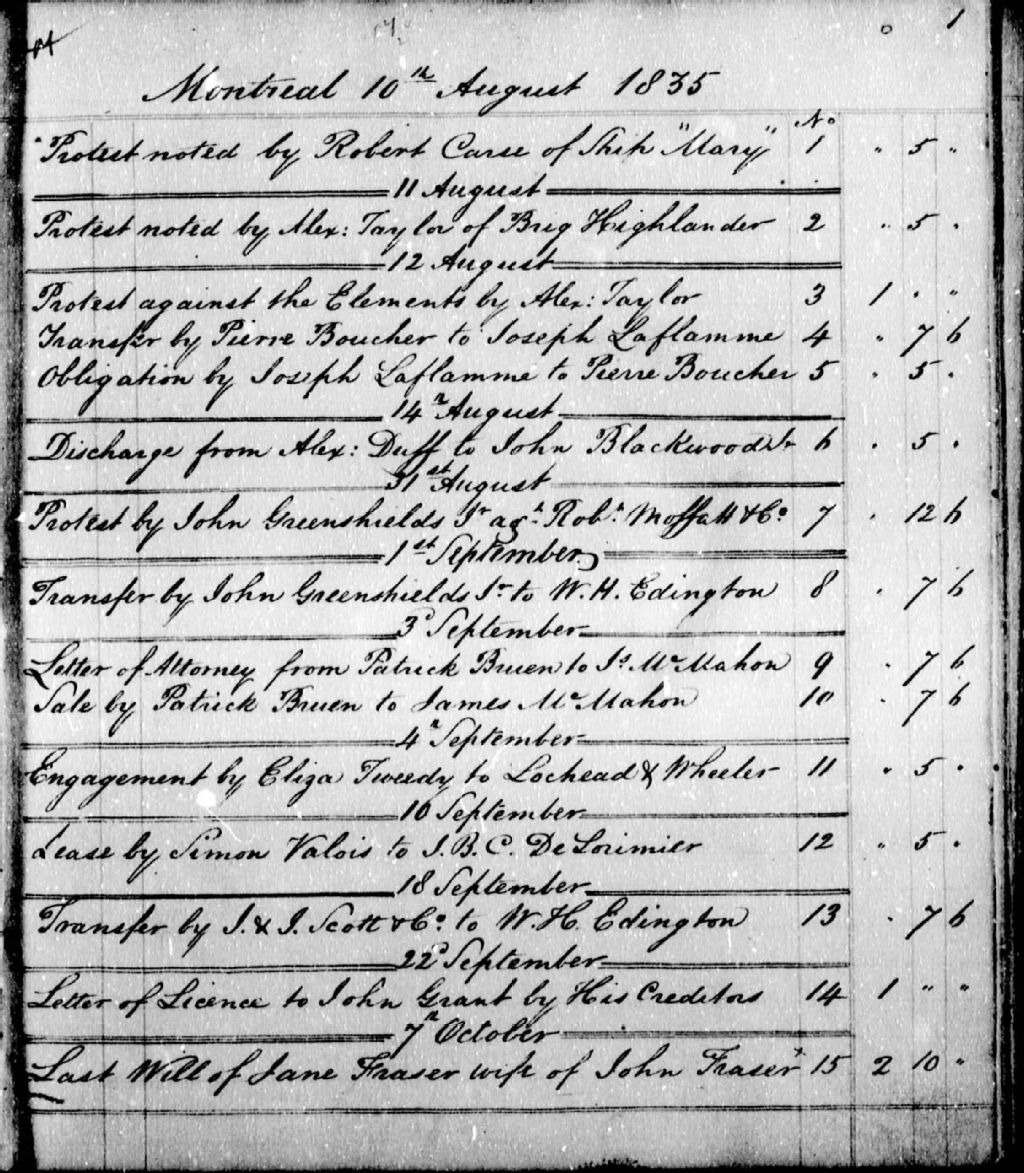 1
Montreal 10th August 1835
No
Protest noted by Robert Carse of Ship "Mary" 1 " 5 "
11 August
Protest noted by Alex: Taylor of Brig Highlander 2 " 5 "
12 August
Protest against the Elements by Alex: Taylor 3 1 " "
Transfer by Pierre Boucher to Joseph Laflamme 4 " 7 6
Obligation by Joseph Laflamme to Pierre Boucher 5 " 5 "
14th August
Discharge from Alex: Duff to John Blackwood Jr 6 " 5 "
31st August
Protest by John Greenshields Jr agt Robt Moffatt & Co 7 " 12 6
1st September
Transfer by John Greenshields Jr to W. H. Edington 8 " 7 6
3d September
Letter of Attorney from Patrick Bruen to Js McMahon 9 " 7 6
Sale by Patrick Bruen to James McMahon 10 " 7 6
4th September
Engagement by Eliza Tweedy to Lochead & Wheeler 11 " 5 "
10 September
Lease by Simon Valois to J. B. C. De Lorimier 12 " 5 "
18 September
Transfer by J. & J. Scott & Co to W. H. Edington 13 " 7 6
22d September
Letter of Licence to John Grant by His Creditors 14 1 " "
7th October
Last Will of Jane Fraser wife of John Fraser 15 2 10 "